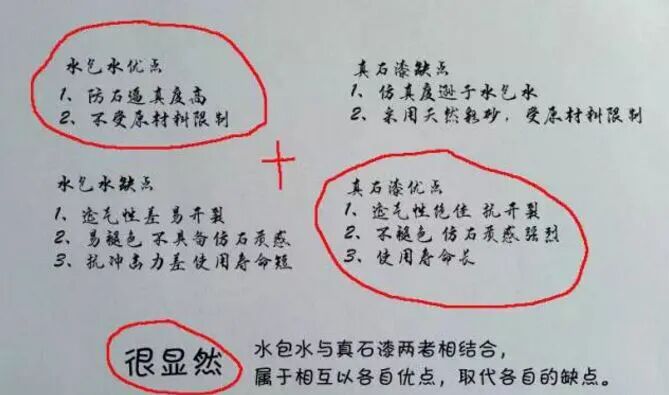 水包水优点
1、防石逼真度高
2、不受原材料限制
真石漆缺点
1、仿真度逊于水包水
2、采用天然彩砂，受原材料限制
水包水缺点
1、透气性差 易开裂
2、易褪色 不具备仿石质感
3、抗冲击力差 使用寿命短
真石漆优点
1、透气性绝佳 抗开裂
2、不褪色 仿石质感强烈
3、使用寿命长
很显然
水包水与真石漆两者相结合，
属于相互以各自优点，取代各自的缺点。